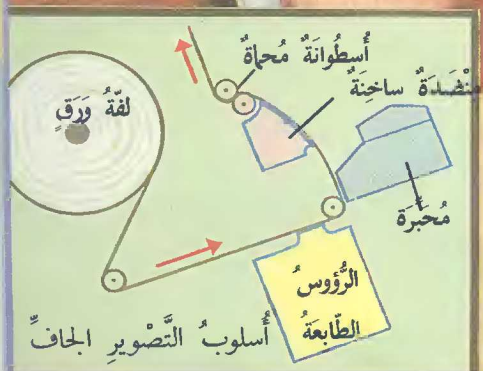 أُسطُوانَةٌ مُحماةٌ
مِنْضَدَةٌ ساخِنَةٌ
لفّةُ وَرَقٍ
مُحَبِّرَة
الرُّؤوسُ
الطّابعَةُ
أُسلوبُ التَّصْويرِ الجافِّ